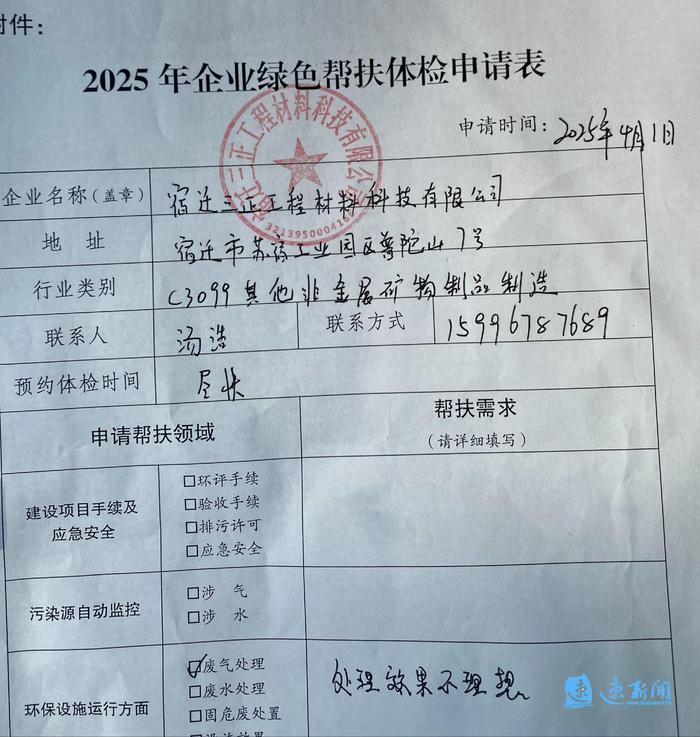 附件：
2025年企业绿色帮扶体检申请表
宿迁三正工程材料科技有限公司
申请时间：2025年4月1日
企业名称(盖章) 宿迁三正工程材料科技有限公司
地 址 宿迁市苏宿工业园区普陀山7号
行业类别 C3099其他非金属矿物制品制造
联系人 汤浩 联系方式 15996787689
预约体检时间 尽快
申请帮扶领域 帮扶需求
(请详细填写)
建设项目手续及
应急安全
□环评手续
□验收手续
□排污许可
□应急安全
污染源自动监控
□涉 气
□涉 水
环保设施运行方面
☑废气处理
□废水处理
□固危废处置
处理效果不理想。
速新闻